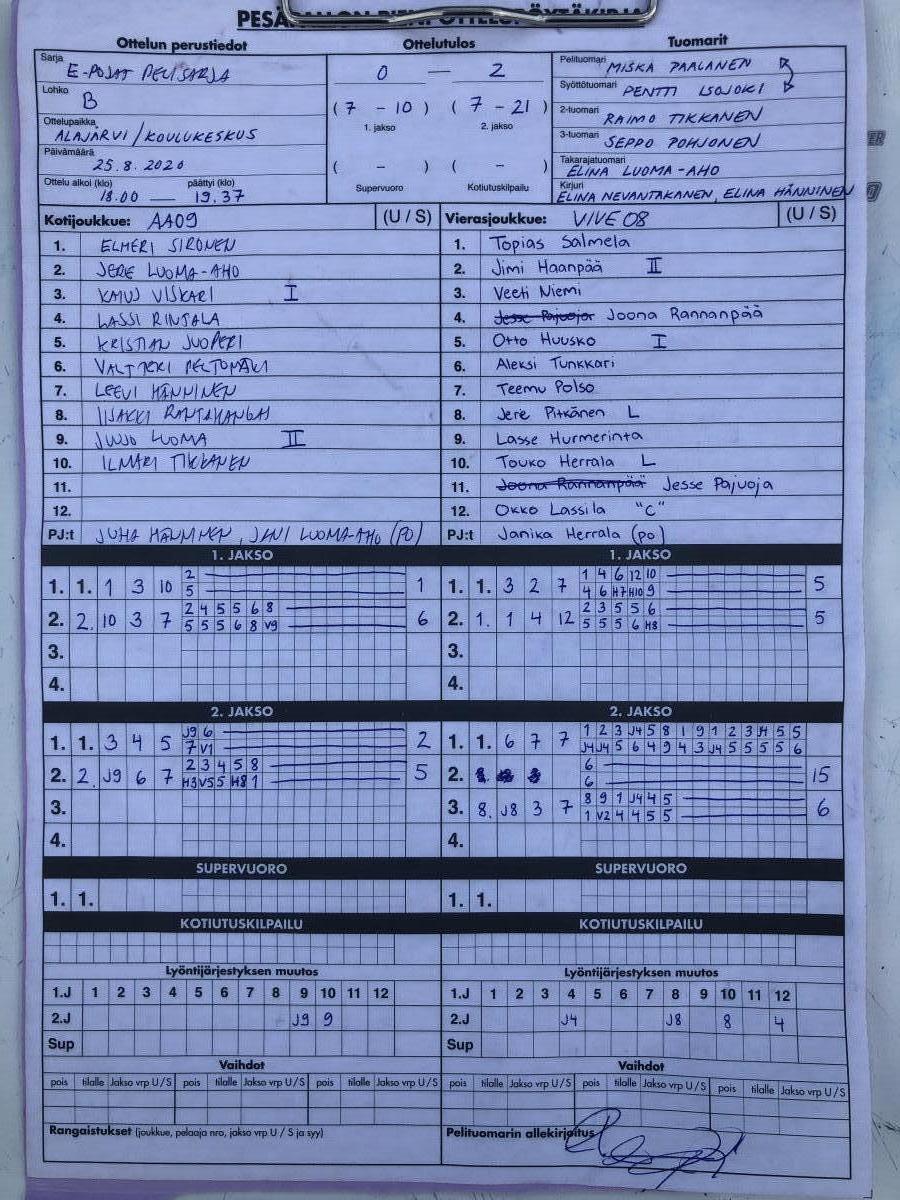 Ottelun perustiedot Ottelutulos Tuomarit
Sarja E-POJAT PELISARJA
Lohko B
Ottelupaikka ALAJÄRVI / KOULUKESKUS
Päivämäärä 25.8.2020
Ottelu alkoi (klo) 18.00 — päättyi (klo) 19.37
0 — 2
(7 - 10) (7 - 21)
1. jakso 2. jakso
( - ) ( - )
Supervuoro Kotiutuskilpailu
Pelituomari MISKA PAALANEN
Syöttötuomari PENTTI ISOJOKI
2-tuomari RAIMO TIKKANEN
3-tuomari SEPPO POHJONEN
Takarajatuomari ELINA LUOMA-AHO
Kirjuri ELINA NEVANTAKANEN, ELINA HÄNNINEN
Kotijoukkue: AA09 (U / S)
1. ELMERI SIRONEN
2. JERE LUOMA-AHO
3. KAIUS VISKARI I
4. LASSI RINTALA
5. KRISTIAN JUOPERI
6. VALTTERI PELTOMÄKI
7. LEEVI HÄNNINEN
8. IISAKKI RANTAKANGAS
9. JUUSO LUOMA II
10. ILMARI TIKKANEN
11.
12.
PJ:t JUHA HÄNNINEN, JANI LUOMA-AHO (PO)
Vierasjoukkue: VIVE 08 (U / S)
1. Topias Salmela
2. Jimi Haanpää II
3. Veeti Niemi
4. Jesse Pajuoja Joona Rannanpää
5. Otto Huusko I
6. Aleksi Tunkkari
7. Teemu Polso
8. Jere Pitkänen L
9. Lasse Hurmerinta
10. Touko Herrala L
11. Joona Rannanpää Jesse Pajuoja
12. Okko Lassila "C"
PJ:t Janika Herrala (po)
1. JAKSO
1. 1. 1 3 10 2 1
5
2. 2. 10 3 7 2 4 5 5 6 8 6
5 5 5 6 8 V9
3.
4.
1. JAKSO
1. 1. 3 2 7 1 4 6 12 10 5
4 6 H7 H10 9
2. 1. 1 4 12 2 3 5 5 6 5
5 5 5 6 H8
3.
4.
2. JAKSO
1. 1. 3 4 5 J9 6 2
7 V1
2. 2 J9 6 7 2 3 4 5 8 5
H3 V5 5 H8 1
3.
4.
2. JAKSO
1. 1. 6 7 7 1 2 3 J4 5 8 1 9 1 2 3 J4 5 5
J4 J4 5 6 4 9 4 3 J4 5 5 5 5 6
2. 6 15
6
3. 8. J8 3 7 8 9 1 J4 4 5 6
1 V2 4 4 5 5
4.
SUPERVUORO SUPERVUORO
1. 1. 1. 1.
KOTIUTUSKILPAILU KOTIUTUSKILPAILU
Lyöntijärjestyksen muutos
1.J 1 2 3 4 5 6 7 8 9 10 11 12
2.J J9 9
Sup
Lyöntijärjestyksen muutos
1.J 1 2 3 4 5 6 7 8 9 10 11 12
2.J J4 J8 8 4
Sup
Vaihdot Vaihdot
pois tilalle Jakso vrp U/S pois tilalle Jakso vrp U/S pois tilalle Jakso vrp U/S
pois tilalle Jakso vrp U/S pois tilalle Jakso vrp U/S pois tilalle Jakso vrp U/S
Rangaistukset (joukkue, pelaaja nro, jakso vrp U / S ja syy)
Pelituomarin allekirjoitus